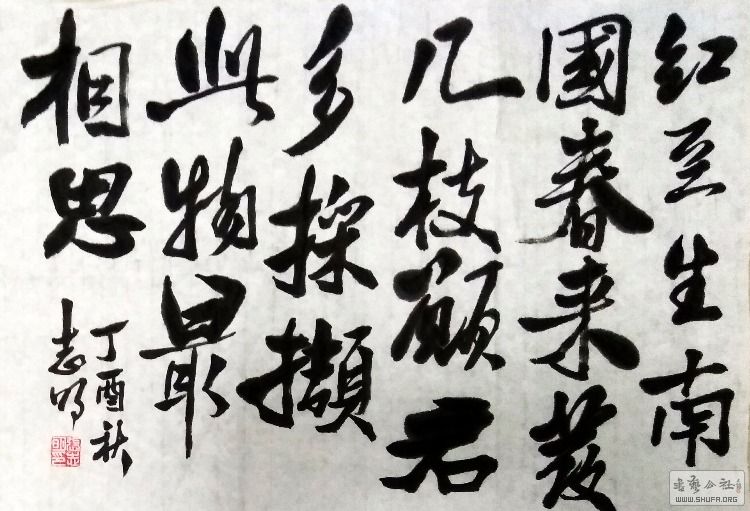 红豆生南
國春来發
几枝願君
多採擷
此物最
相思
丁酉秋
志明
书艺公社
WWW.SHUFA.ORG